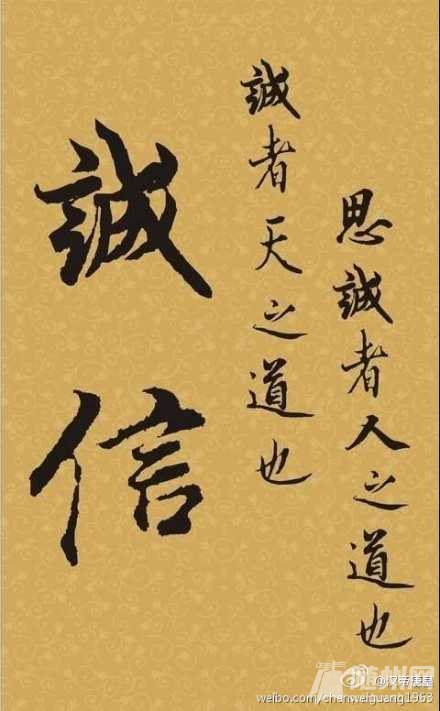 誠信
誠者天之道也
思誠者人之道也
随州网
weibo.com/chenweiguang1963